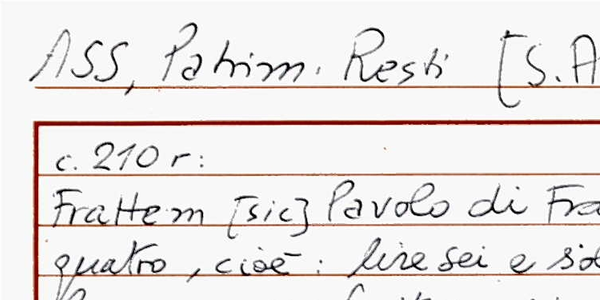 ASS, Patrim. Resti [S. A
c. 210 r:
Frattem [sic] Pavolo di Fra
quatro, cioè: lire sei e sol